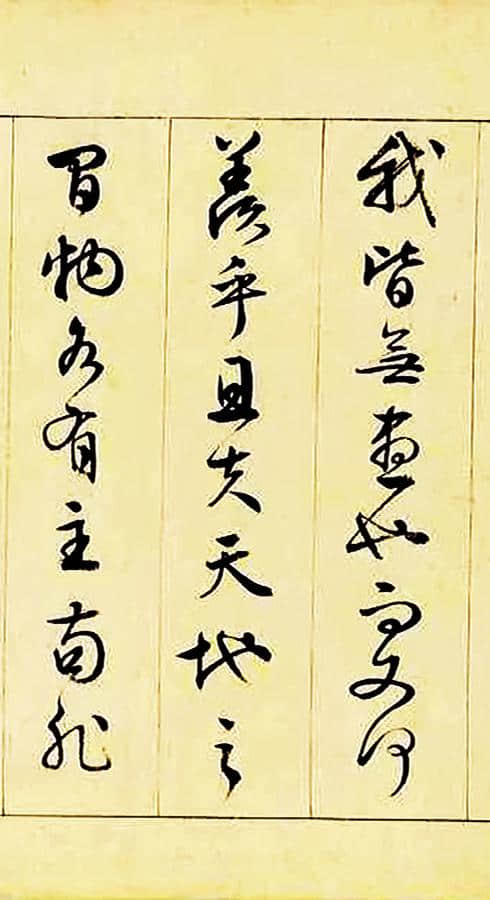 我皆無盡也而又何
羨乎且夫天地之
間物各有主苟非